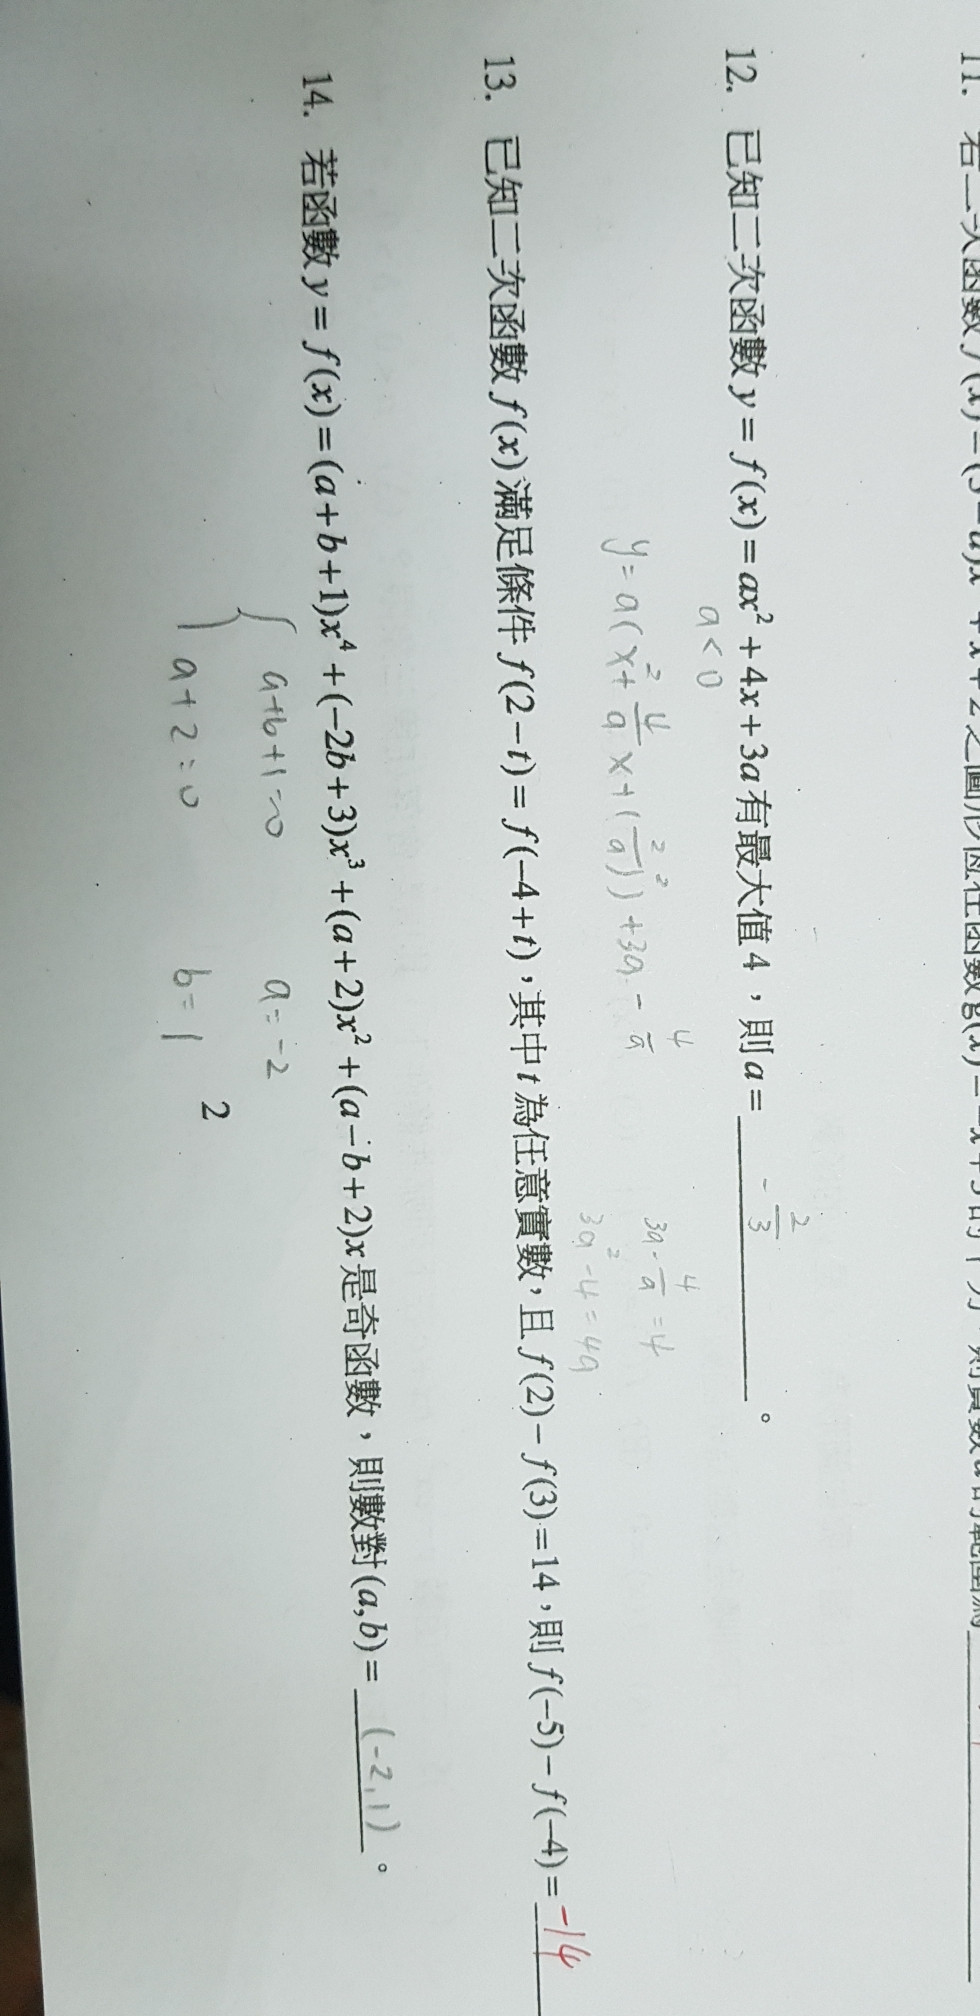 12. 已知二次函數 y = f(x) = ax² + 4x + 3a 有最大值 4,則 a = -2/3 。
a < 0
y = a(x² + 4/a x + (2/a)²) + 3a - 4/a
3a - 4/a = 4
3a² - 4 = 4a
13. 已知二次函數 f(x) 滿足條件 f(2-t) = f(-4+t),其中 t 為任意實數,且 f(2) - f(3) = 14,則 f(-5) - f(-4) = -14
14. 若函數 y = f(x) = (a+b+1)x⁴ + (-2b+3)x³ + (a+2)x² + (a-b+2)x 是奇函數,則數對 (a,b) = (-2,1) 。
{ a+b+1=0 a=-2
a+2=0 b=1
2